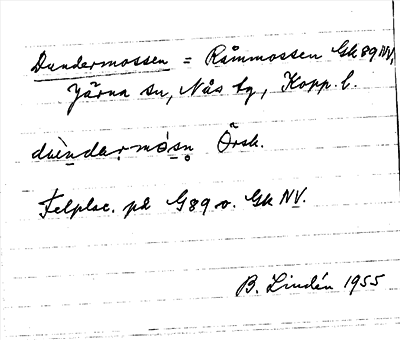 Dundermossen = Råmmossen Gk 89 NV,
Järna sn, Nås tg, Kopp. l.
dùndarmósn Örsk.
Felplac. på G89 o. Gk NV.
B. Lindén 1955